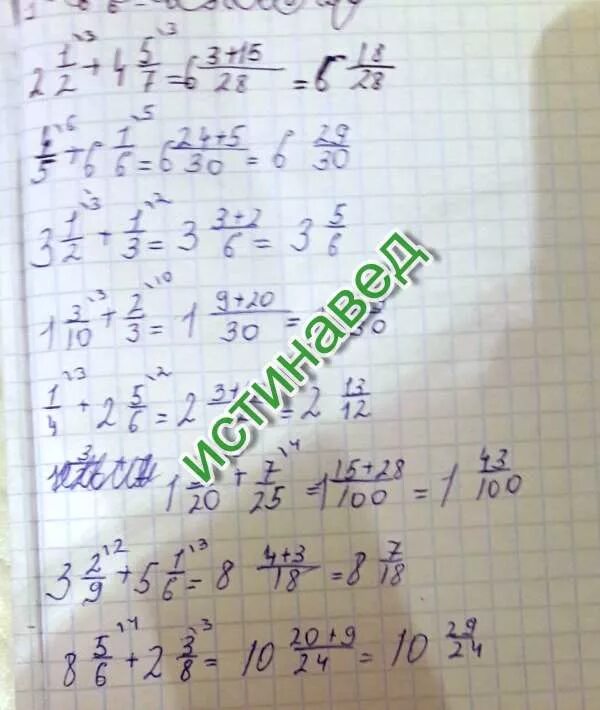 2 1/2 ^3 + 4 5/7 ^3 = 6 3+15/28 = 6 18/28
4/5 ^6 + 6 1/6 ^5 = 6 24+5/30 = 6 29/30
3 1/2 ^3 + 1/3 ^2 = 3 3+2/6 = 3 5/6
1 3/10 ^3 + 2/3 ^10 = 1 9+20/30 = /30
1/4 ^3 + 2 5/6 ^2 = 2 3+ = 2 13/12
1 3/20 + 7/25 ^4 = 1 15+28/100 = 1 43/100
3 2/9 ^2 + 5 1/6 ^3 = 8 4+3/18 = 8 7/18
8 5/6 ^4 + 2 3/8 ^3 = 10 20+9/24 = 10 29/24
истинавед